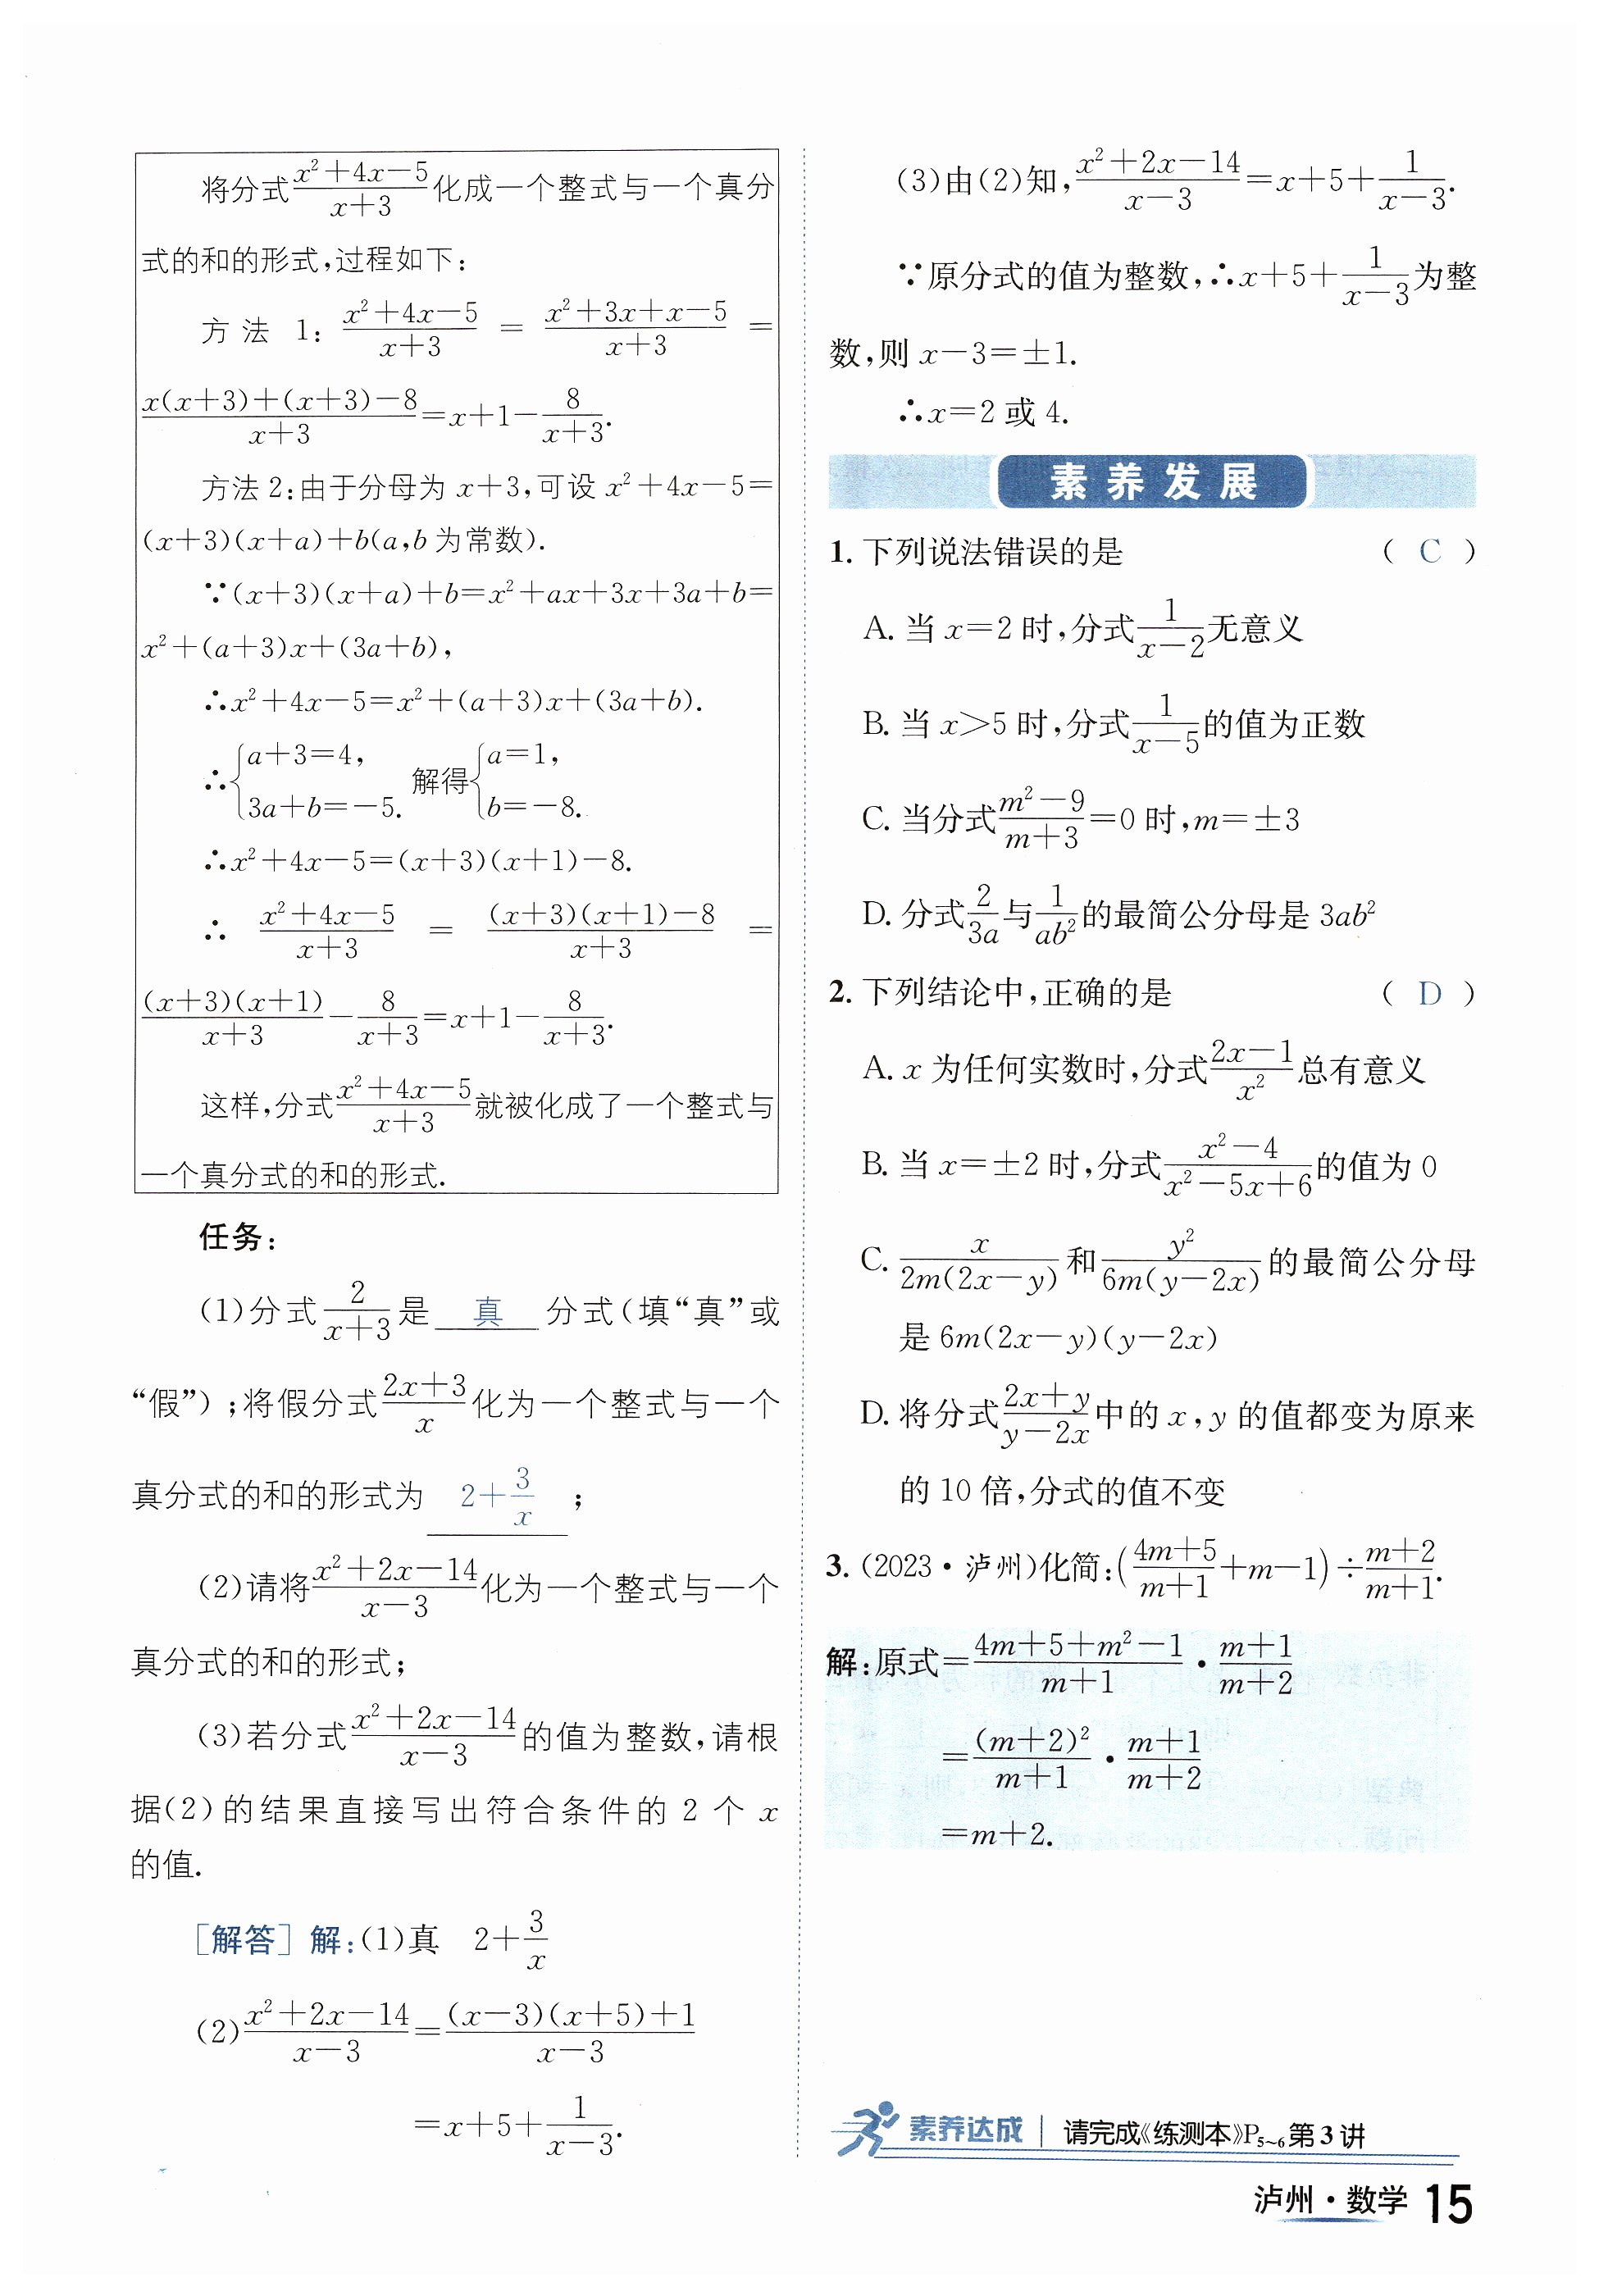 将分式(x²+4x-5)/(x+3)化成一个整式与一个真分
式的和的形式,过程如下:
方法 1: (x²+4x-5)/(x+3) = (x²+3x+x-5)/(x+3) =
(x(x+3)+(x+3)-8)/(x+3)=x+1-8/(x+3).
方法2:由于分母为 x+3,可设 x²+4x-5=
(x+3)(x+a)+b(a,b为常数).
∵(x+3)(x+a)+b=x²+ax+3x+3a+b=
x²+(a+3)x+(3a+b),
∴x²+4x-5=x²+(a+3)x+(3a+b).
∴{a+3=4, 3a+b=-5. 解得{a=1, b=-8.
∴x²+4x-5=(x+3)(x+1)-8.
∴ (x²+4x-5)/(x+3) = ((x+3)(x+1)-8)/(x+3) =
((x+3)(x+1))/(x+3)-8/(x+3)=x+1-8/(x+3).
这样,分式(x²+4x-5)/(x+3)就被化成了一个整式与
一个真分式的和的形式.
任务:
(1)分式2/(x+3)是 真 分式(填“真”或
“假”);将假分式(2x+3)/x化为一个整式与一个
真分式的和的形式为 2+3/x ;
(2)请将(x²+2x-14)/(x-3)化为一个整式与一个
真分式的和的形式;
(3)若分式(x²+2x-14)/(x-3)的值为整数,请根
据(2)的结果直接写出符合条件的 2 个 x
的值.
[解答] 解:(1)真 2+3/x
(2)(x²+2x-14)/(x-3)=((x-3)(x+5)+1)/(x-3)
=x+5+1/(x-3).
(3)由(2)知,(x²+2x-14)/(x-3)=x+5+1/(x-3).
∵原分式的值为整数,∴x+5+1/(x-3)为整
数,则 x-3=±1.
∴x=2 或 4.
素养发展
1. 下列说法错误的是 ( C )
A. 当 x=2 时,分式1/(x-2)无意义
B. 当 x>5 时,分式1/(x-5)的值为正数
C. 当分式(m²-9)/(m+3)=0 时,m=±3
D. 分式2/(3a)与1/(ab²)的最简公分母是 3ab²
2. 下列结论中,正确的是 ( D )
A. x 为任何实数时,分式(2x-1)/x²总有意义
B. 当 x=±2 时,分式(x²-4)/(x²-5x+6)的值为 0
C. x/(2m(2x-y))和y²/(6m(y-2x))的最简公分母
是 6m(2x-y)(y-2x)
D. 将分式(2x+y)/(y-2x)中的 x,y 的值都变为原来
的 10 倍,分式的值不变
3. (2023·泸州)化简:((4m+5)/(m+1)+m-1)÷(m+2)/(m+1).
解:原式=(4m+5+m²-1)/(m+1)·(m+1)/(m+2)
=(m+2)²/(m+1)·(m+1)/(m+2)
=m+2.
素养达成 | 请完成《练测本》P₅~₆第3讲
泸州·数学 15